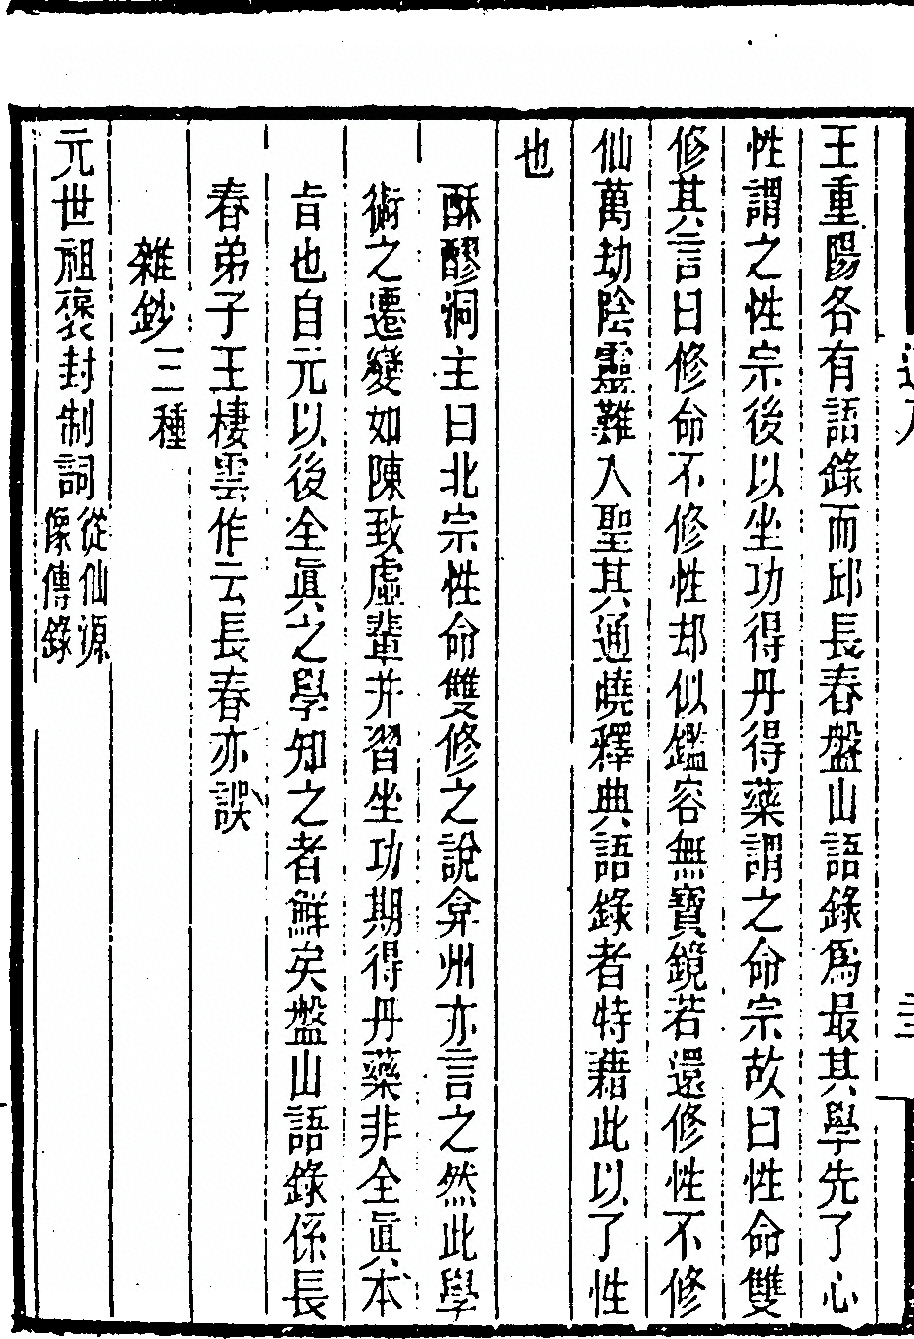 王重陽各有語錄而邱長春盤山語錄爲最其學先了心
性謂之性宗後以坐功得丹得藥謂之命宗故曰性命雙
修其言曰修命不修性却似鑑容無寶鏡若還修性不修
仙萬劫陰靈難入聖其通曉釋典語錄者特藉此以了性
也
酥醪洞主曰北宗性命雙修之說弇州亦言之然此學
術之遷變如陳致虛輩幷習坐功期得丹藥非全眞本
旨也自元以後全眞之學知之者鮮矣盤山語錄係長
春弟子王棲雲作云長春亦誤
雜鈔三種
元世祖褒封制詞從仙源
像傳錄